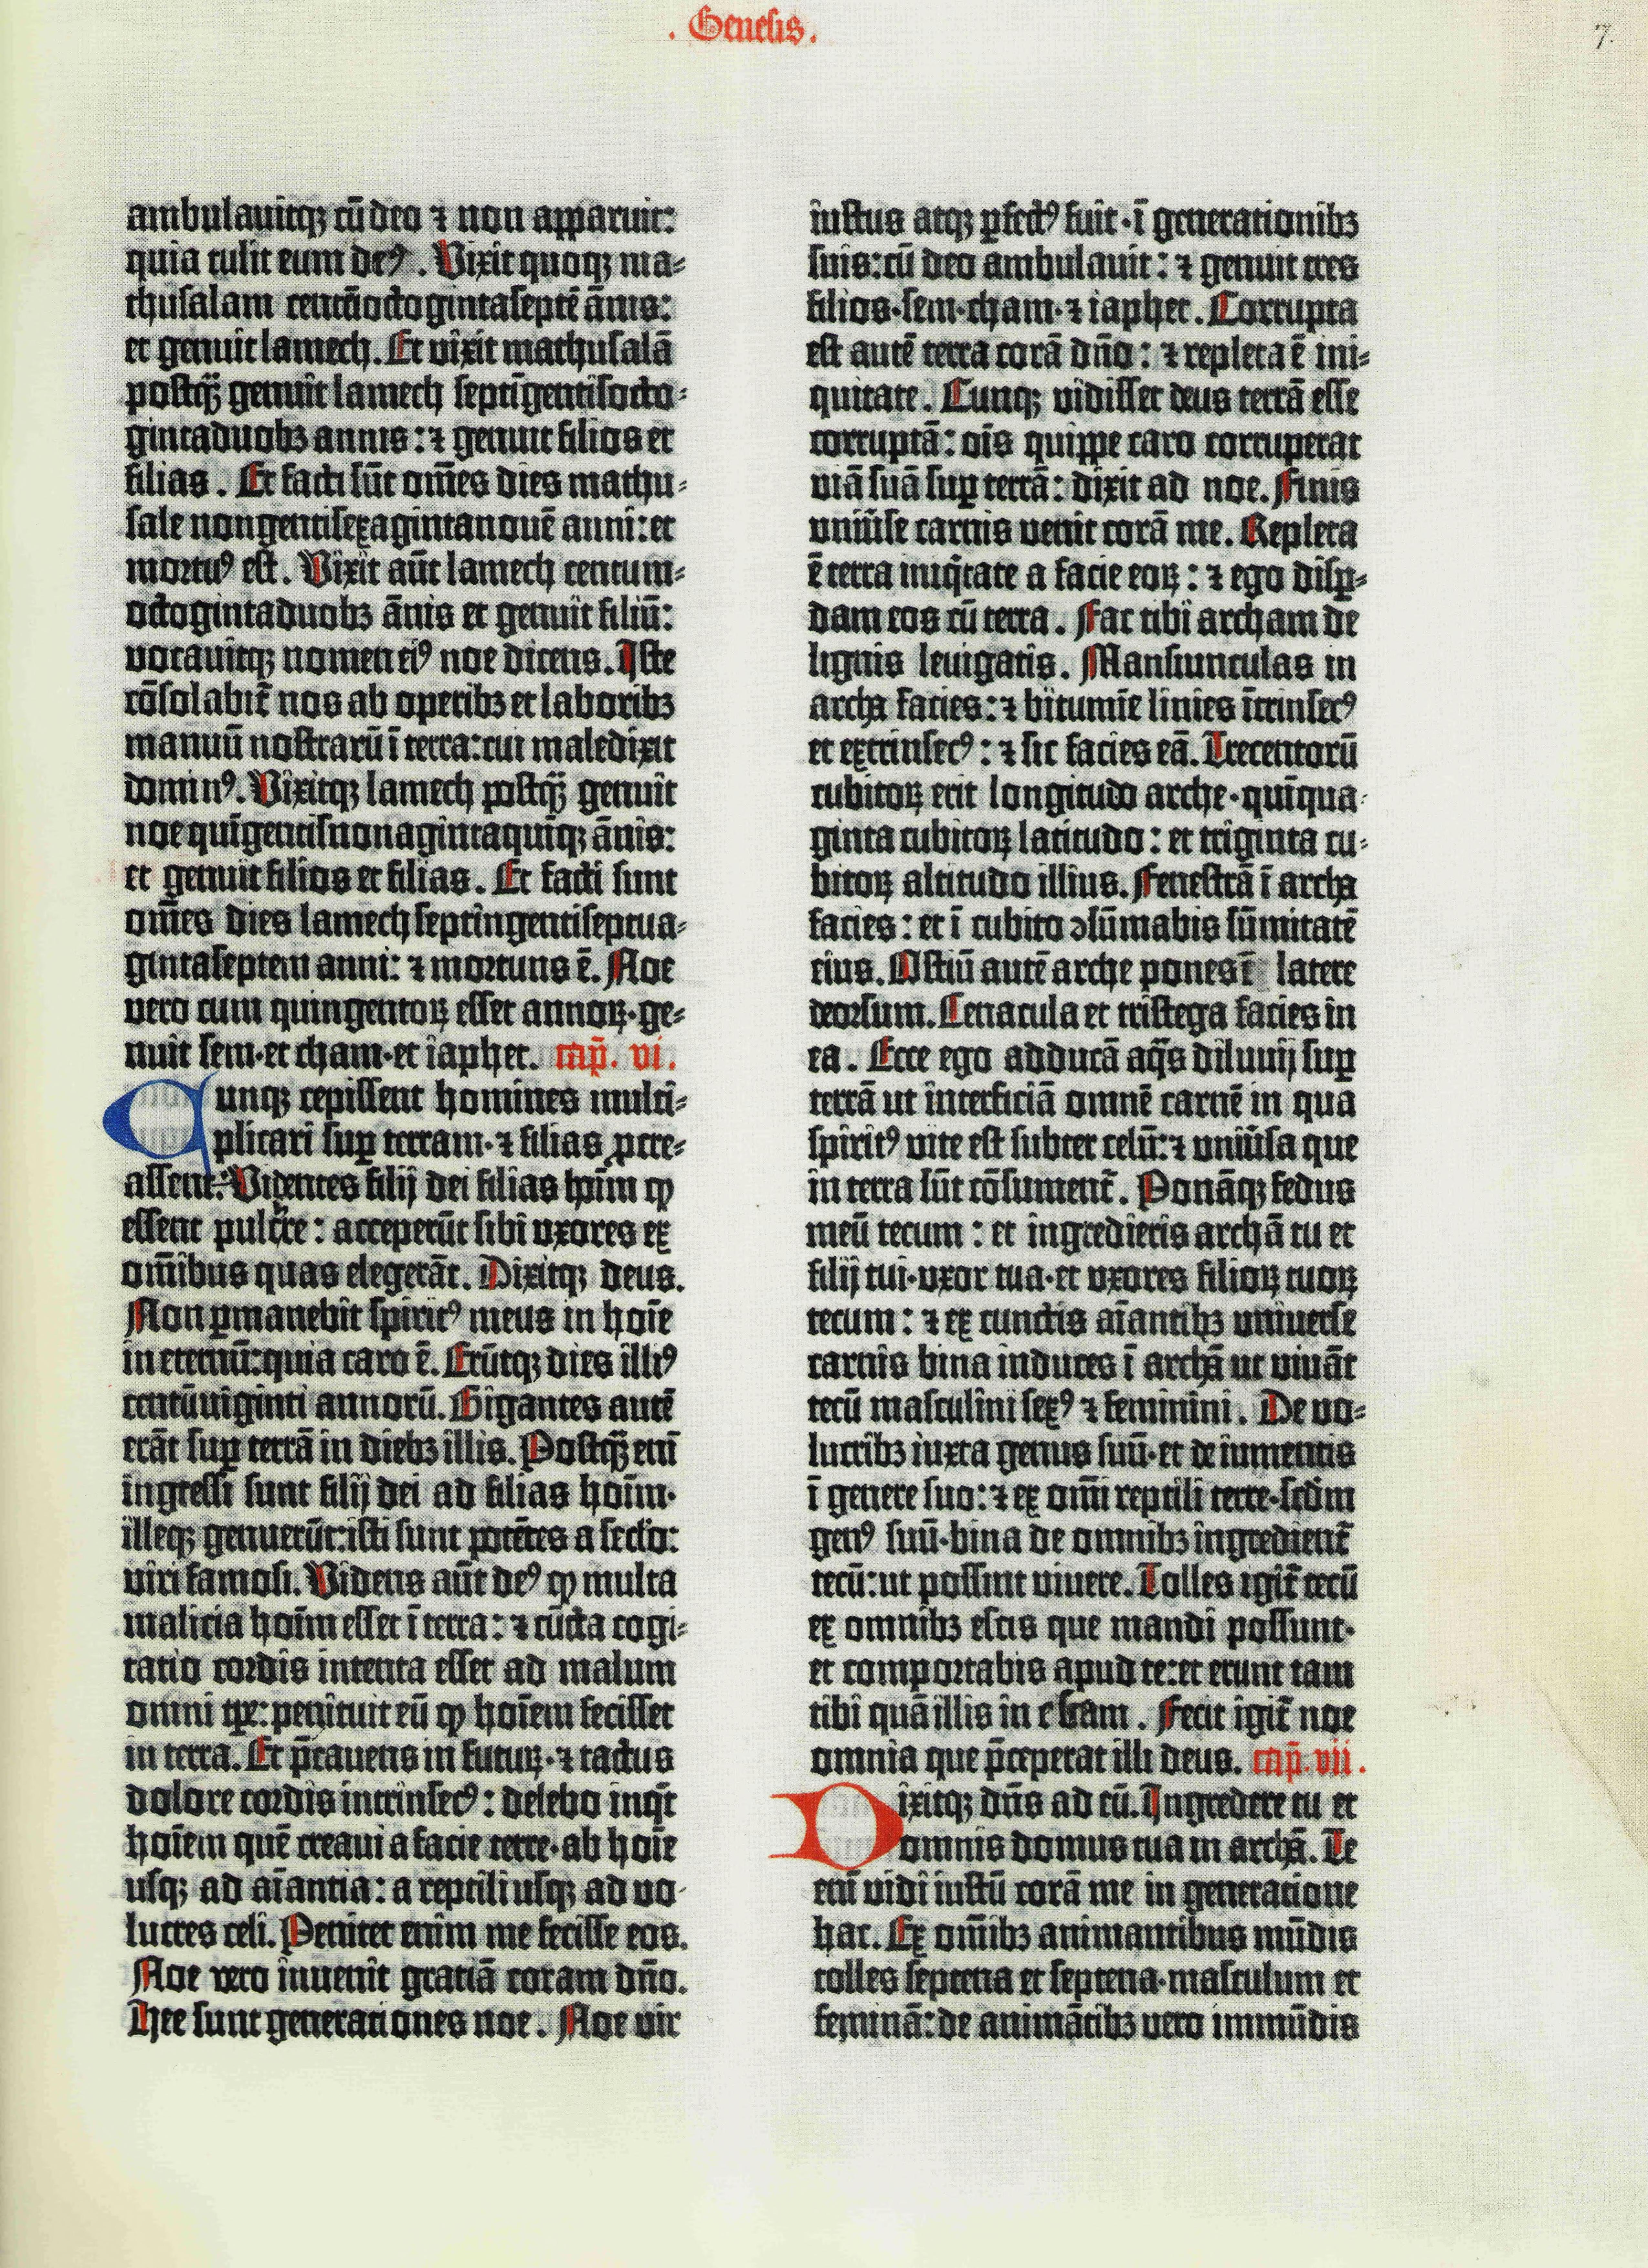 . Genesis .
7.
ambulauitqꝫ cū deo ⁊ non apparuit:
quia tulit eum deꝰ. Vixit quoqꝫ ma-
thusalam centūoctogintaseptē ānis:
et genuit lamech. Et vixit mathusalā
postꝙ̄ genuit lamech septīgentisocto-
gintaduobꝫ annis: ⁊ genuit filios et
filias. Et facti sūt om̄es dies mathu-
sale nongentisexagintanouē anni: et
mortuꝰ est. Vixit aūt lamech centum-
octogintaduobꝫ ānis et genuit filiū:
vocauitqꝫ nomen eiꝰ noe dicens. Iste
cōsolabit᷑ nos ab operibꝫ et laboribꝫ
manuū nostrarū ī terra: cui maledixit
dominꝰ. Vixitqꝫ lamech postꝙ̄ genuit
noe quīgentisnonagintaquīqꝫ ānis:
et genuit filios et filias. Et facti sunt
om̄es dies lamech septingentiseptua-
gintaseptem anni: ⁊ mortuus ē. Noe
vero cum quingentoꝝ esset annoꝝ· ge-
nuit sem· et cham· et iaphet. cap̄. vi.
Cunqꝫ cepissent homines multi-
plicari suꝑ terram· ⁊ filias ꝓcre-
assent: Videntes filij dei filias hoīm ꝙ
essent pulcre: acceperūt sibi vxores ex
om̄ibus quas elegerāt. Dixitqꝫ deus.
Non ꝑmanebit spiritꝰ meus in hoīe
in eternū: quia caro ē. Erūtqꝫ dies illiꝰ
centūuiginti annorū. Gigantes autē
erāt suꝑ terrā in diebꝫ illis. Postꝙ̄ enī
ingressi sunt filij dei ad filias hoīm·
illeqꝫ genuerūt: isti sunt potētes a sec̄lo:
viri famosi. Videns aūt deꝰ ꝙ multa
malicia hoīm esset ī terra: ⁊ cūcta cogi-
tatio cordis intenta esset ad malum
omni tꝑe: penituit eū ꝙ hoīem fecisset
in terra. Et p̄cauens in futuꝝ· ⁊ tactus
dolore cordis intrinsecꝰ: delebo inq̄t
hoīem quē creaui a facie terre· ab hoīe
usqꝫ ad aīantia: a reptili usqꝫ ad vo-
lucres celi. Penitet enim me fecisse eos.
Noe vero inuenit gratiā coram dn̄o.
Hee sunt generationes noe. Noe vir
iustus atqꝫ ꝑfectꝰ fuit· ī generationibꝫ
suis: cū deo ambulauit: ⁊ genuit tres
filios· sem· cham· ⁊ iaphet. Corrupta
est autē terra corā dn̄o: ⁊ repleta ē ini-
quitate. Cunqꝫ vidisset deus terrā esse
corruptā: oīs quippe caro corruperat
viā suā suꝑ terrā: dixit ad noe. Finis
vniūse carnis venit corā me. Repleta
ē terra iniq̄tate a facie eoꝝ: ⁊ ego disꝑ-
dam eos cū terra. Fac tibi archam de
lignis leuigatis. Mansiunculas in
archa facies: ⁊ bitumīe linies ītrinsecꝰ
et extrinsecꝰ: ⁊ sic facies eā. Trecentorū
cubitoꝝ erit longitudo arche· quīqua-
ginta cubitoꝝ latitudo: et triginta cu-
bitoꝝ altitudo illius. Fenestrā ī archa
facies: et ī cubito ↄsūmabis sūmitatē
eius. Ostiū autē arche pones ī latere
deorsum. Cenacula et tristega facies in
ea. Ecce ego adducā aq̄s diluuij suꝑ
terrā ut interficiā omnē carnē in qua
spiritꝰ vite est subter celū: ⁊ vniūsa que
in terra sūt cōsument᷑. Ponāqꝫ fedus
meū tecum: et ingredieris archā tu et
filij tui· vxor tua· et vxores filioꝝ tuoꝝ
tecum: ⁊ ex cunctis aīantibꝫ vniuerse
carnis bina induces ī archā ut viuāt
tecū masculini sexꝰ ⁊ feminini. De vo-
lucribꝫ iuxta genus suū· et de iumentis
ī genere suo: ⁊ ex om̄i reptili terre· scd̄m
genꝰ suū· bina de omnibꝫ ingredient᷑
tecū: ut possint viuere. Tolles igit᷑ tecū
ex omnibꝫ escis que mandi possunt·
et comportabis apud te: et erunt tam
tibi quā illis in cibam. Fecit igit᷑ noe
omnia que p̄ceperat illi deus. cap̄. vii.
Dixitqꝫ dn̄s ad eū. Ingredere tu et
omnis domus tua in archā. Te
enī vidi iustū corā me in generatione
hac. Ex om̄ibꝫ animantibus mūdis
tolles septena et septena· masculum et
feminā: de animātibꝫ vero immūdis